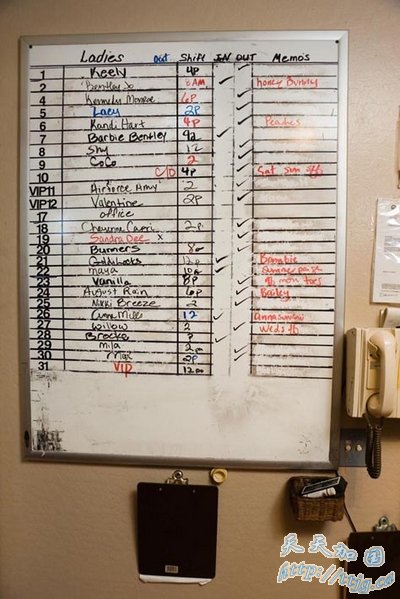 Ladies out Shift IN OUT Memo's
1 Keely 4p
2 Bentley 8AM honey Bunny
4 Kennedy Monroe 6p
5 Lacy 2p
6 Kandi Hart 4p Peaches
7 Barbie Bentley 9a
8 Shy 12
9 CoCo 2
10 C/O 4p Sat Sun
VIP11 Airforce Amy 2
VIP12 Valentine 2p
17 office
18 Cheyenne 2p
19 Sandra Dee x
20 Bunners
21 Goldilocks 12p Bambie
22 Maya 10a Summer
23 Vanilla 8p mon tues
24 August Rain 6p Bailey
25 Nikki Breeze 2
26 12 Anna
27 Willow 2 Weds
28 Brooke
29 Mila 2
30 2p
31 VIP 12
天天加图
http://ttjg.cc